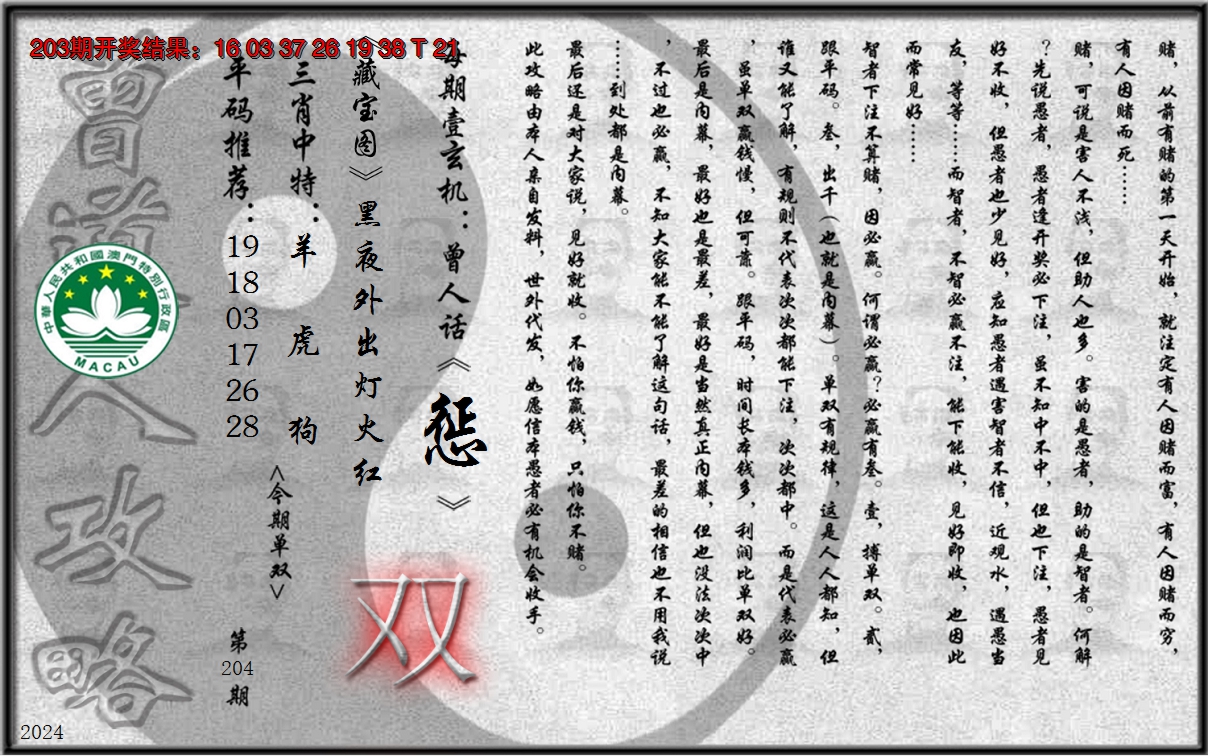 203期开奖结果：16 03 37 26 19 38 T 21
赌，从前有赌的第一天开始，就注定有人因赌而富，有人因赌而穷，
有人因赌而死……
赌，可说是害人不浅，但助人也多。害的是愚者，助的是智者。何解
？先说愚者，愚者逢开奖必下注，虽不知中不中，但也下注，愚者见
好不收，但愚者也少见好，应知愚者遇害智者不信，近观水，遇愚当
友，等等……而智者，不智必赢不注，能下能收，见好即收，也因此
而常见好……
智者下注不算赌，因必赢。何谓必赢？必赢有叁。壹，搏单双。贰，
跟平码。叁，出千（也就是内幕）。单双有规律，这是人人都知，但
谁又能了解，有规则不代表次次都能下注，次次都中。而是代表必赢
，虽单双赢钱慢，但可靠。跟平码，时间长本钱多，利润比单双好。
最后是内幕，最好也是最差，最好是当然真正内幕，但也没法次次中
，不过也必赢，不知大家能不能了解这句话，最差的相信也不用我说
……到处都是内幕。
最后还是对大家说，见好就收。不怕你赢钱，只怕你不赌。
此攻略由本人亲自发料，世外代发，如愿信本愚者必有机会收手。
每期壹玄机：曾人话《惩》
《藏宝图》黑夜外出灯火红
双
三肖中特：羊 虎 狗
<今期单双>
平码推荐：19 18 03 17 26 28
第204期
曾道人攻略
中華人民共和國澳門特別行政區
MACAU
2024